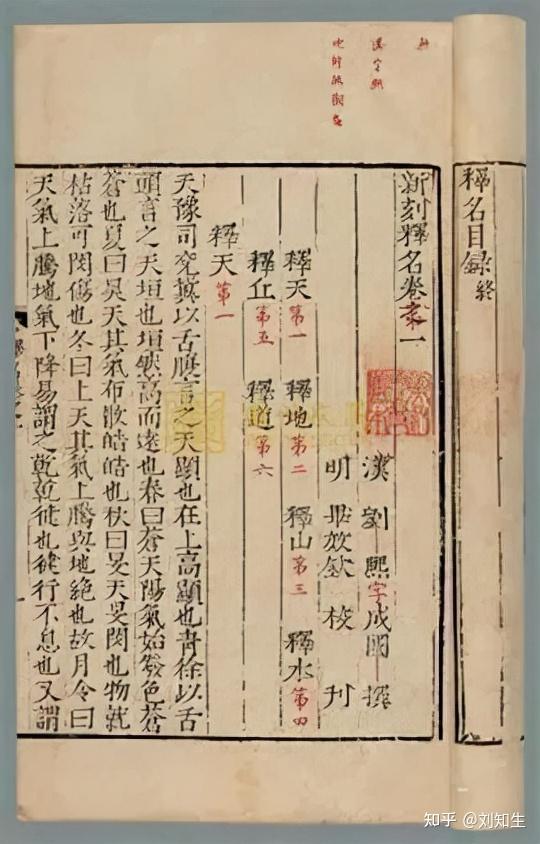 釋名目録終
新刻釋名卷第一
漢 劉 熙字成國 撰
明 畢效欽 校 刊
釋天第一 釋地第二 釋山第三 釋水第四
釋丘第五 釋道第六
釋天第一
天豫司兗冀以舌腹言之天顯也在上高顯也青徐以舌
頭言之天垣也垣然高而遠也春曰蒼天陽氣始發色蒼
蒼也夏曰昊天其氣布散皓皓也秋曰旻天旻閔也物就
枯落可閔傷也冬曰上天其氣上騰與地絶也故月令曰
天氣上騰地氣下降易謂之乾乾健也健行不息也又謂
知乎 @刘知生